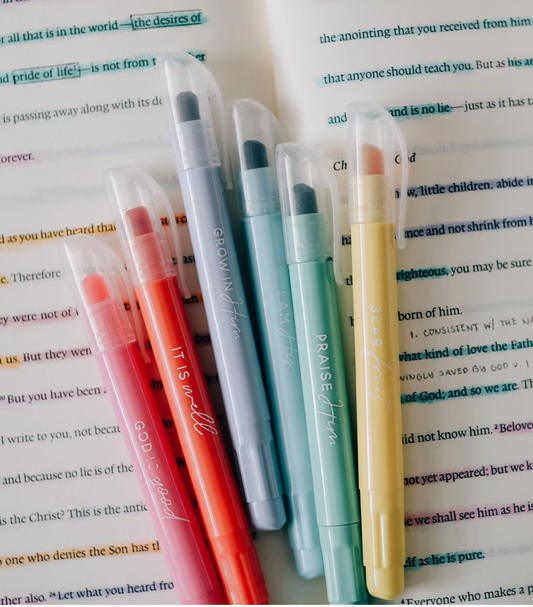 r all that is in the world—the desires of
nd pride of life—is not from t
is passing away along with its de
forever.
d as you have heard that
c. Therefore
ey were not of
us. But they wen
But you have been
I write to you, not becau
and because no lie is of the
is the Christ? This is the antic
o one who denies the Son has th
ther also. 24 Let what you heard fro
the anointing that you received from him
that anyone should teach you. But as his an
and is no lie—just as it has t
Ch God
ow, little children, abide in
ence and not shrink from h
righteous, you may be sure
born of him.
1. CONSISTENT W/ THE NA
what kind of love the Fath
WINGLY SAVED BY GOD V. 1
of God; and so we are. Th
did not know him. 2 Belove
not yet appeared; but we k
se we shall see him as he is
elf as he is pure.
Everyone who makes a p
GOD IS good
IT IS well
GROW IN Him
I AM His
PRAISE Him
BEAR fruit